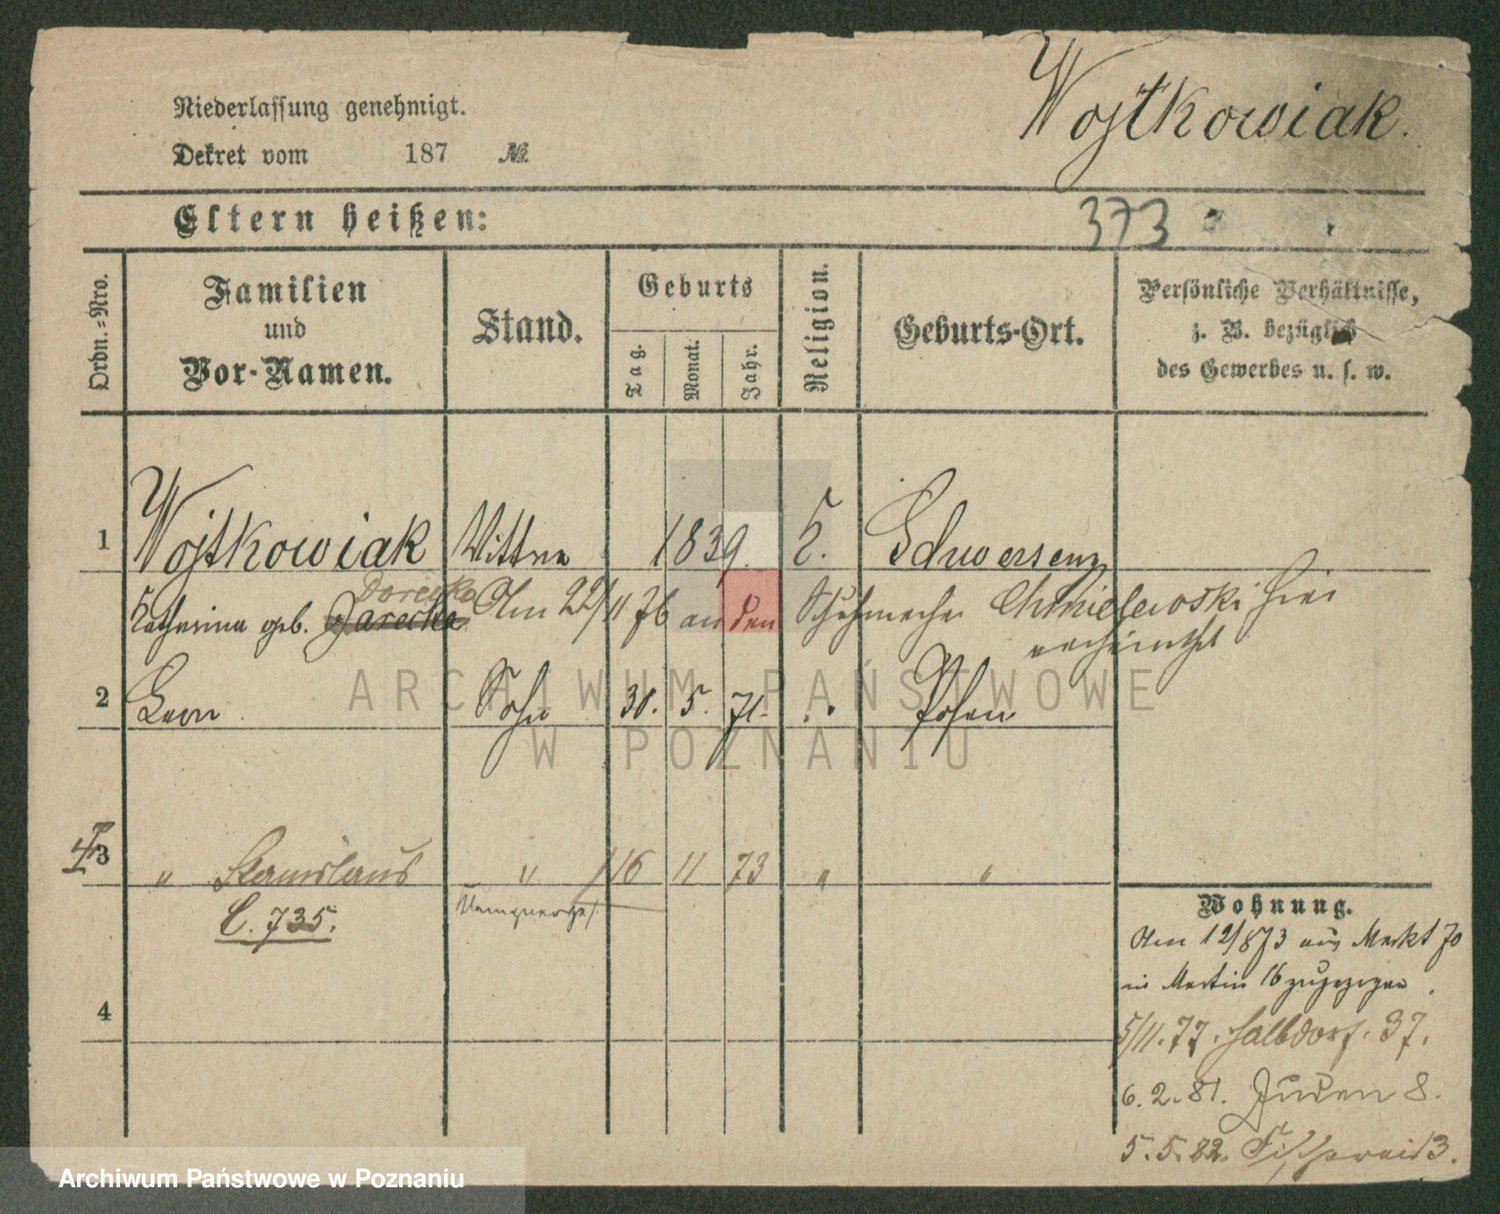 Niederlassung genehmigt.
Dekret vom 187 №
Wojtkowiak.
Eltern heißen:
373
Ordn.-Nro.
Familien
und
Vor-Namen.
Stand.
Geburts
Tag.
Monat.
Jahr.
Religion.
Geburts-Ort.
Persönliche Verhältnisse,
z. B. bezüglich
des Gewerbes u. s. w.
1 Wojtkowiak Wittwe 1839. Schwersenz
Dorecka
Katharina geb. Darecka Am 22/11 76 an den Schuhmacher Chmielewski hier
verheirathet
2 Leon Sohn 30. 5. 71. Posen
3 " Stanislaus " 16 11 73 " "
C. 735.
4
Wohnung.
Am 12/873 aus Markt 70
in Martin 16 zugezogen.
5/11. 77. Halbdorf. 37.
6. 2. 81. Juden 8.
5. 5. 82. Fischerei 3.
ARCHIWUM PAŃSTWOWE
W POZNANIU
Archiwum Państwowe w Poznaniu